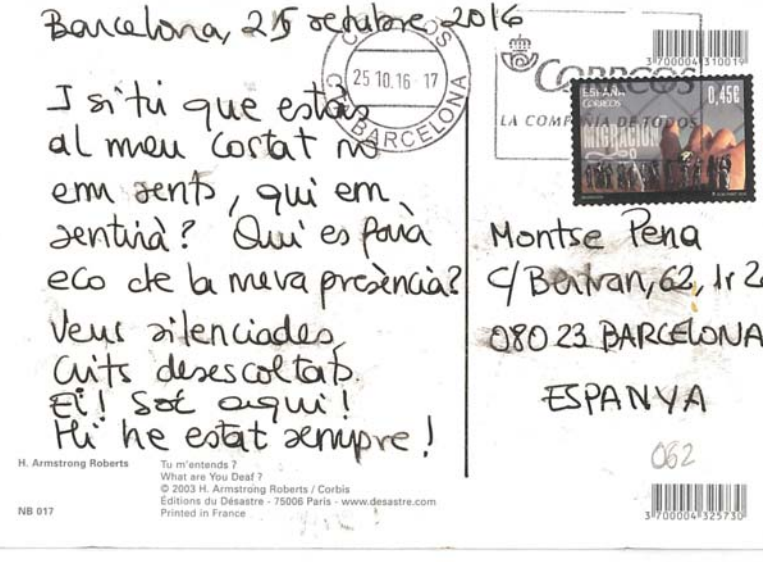 Barcelona, 25 octubre 2016
I si tu que estàs
al meu costat no
em sents, qui em
sentirà? Qui es farà
eco de la meva presència?
Veus silenciades,
Crits desescoltats.
Ei! Soc aquí!
Hi he estat sempre!
H. Armstrong Roberts
NB 017
Tu m'entends ?
What are You Deaf ?
© 2003 H. Armstrong Roberts / Corbis
Éditions du Désastre - 75006 Paris - www.desastre.com
Printed in France
CORREOS
25 10.16 17
BARCELONA
CORREOS
LA COMPAÑIA DE TODOS
3 700004 310019
ESPAÑA
CORREOS
0,45€
MIGRACIÓN
Montse Pena
C/ Bertran, 62, 1r 2a
08023 BARCELONA
ESPANYA
062
3 700004 325730